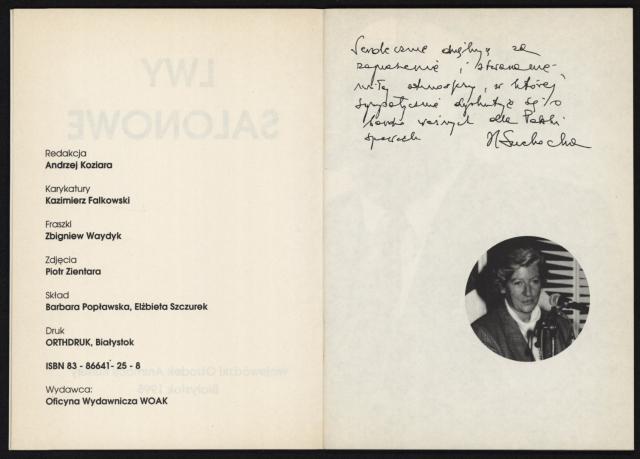 Redakcja
Andrzej Koziara
Karykatury
Kazimierz Falkowski
Fraszki
Zbigniew Waydyk
Zdjęcia
Piotr Zientara
Skład
Barbara Popławska, Elżbieta Szczurek
Druk
ORTHDRUK, Białystok
ISBN 83 - 86641- 25 - 8
Wydawca:
Oficyna Wydawnicza WOAK
Serdecznie dziękuję za
zaproszenie i stworzenie
miłej atmosfery, w której
sympatycznie dyskutuje się o
bardzo ważnych dla Polski
sprawach HSuchocka
LWY
SALONOWE
Wojewódzki Ośrodek Animacji Kultury
Białystok 1995